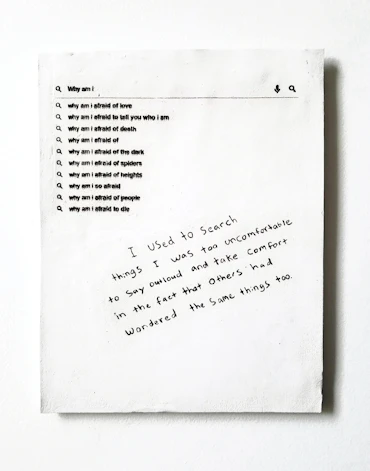 Why am i
why am i afraid of love
why am i afraid to tell you who i am
why am i afraid of death
why am i afraid of
why am i afraid of the dark
why am i afraid of spiders
why am i afraid of heights
why am i so afraid
why am i afraid of people
why am i afraid to die
I used to search
things I was too uncomfortable
to say outloud and take comfort
in the fact that others had
wondered the same things too.